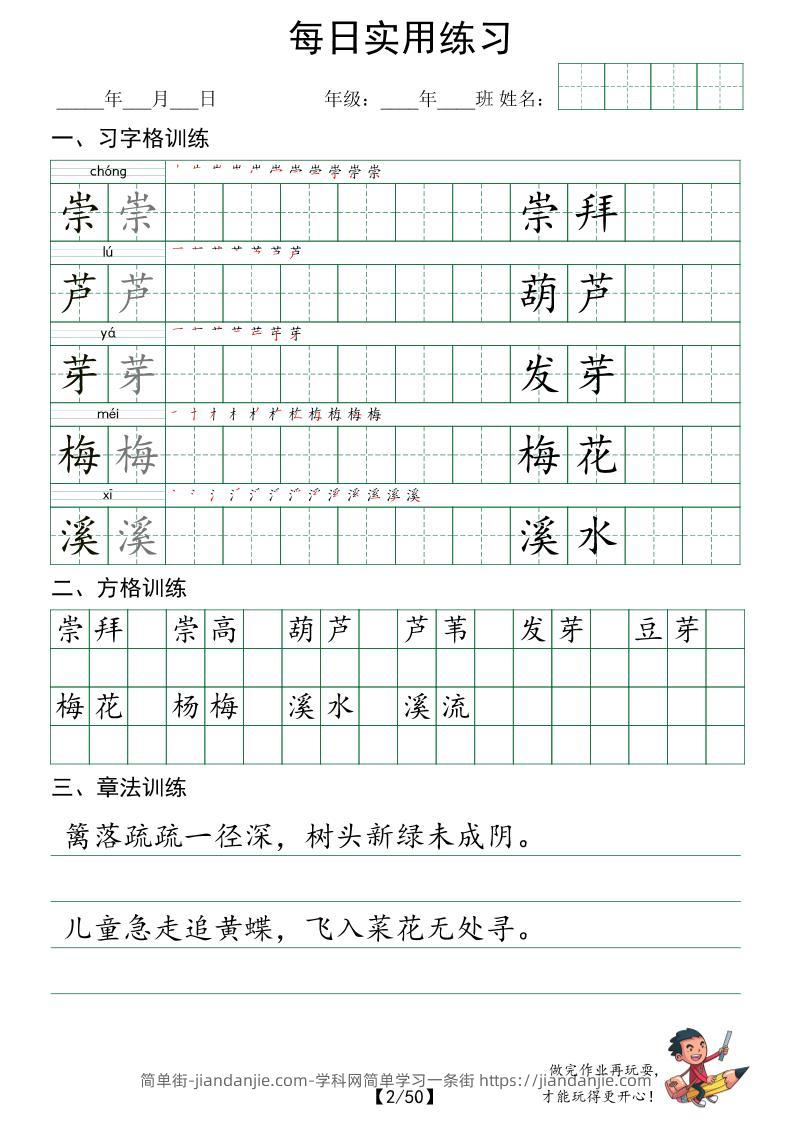 每日实用练习
_____年___月___日 年级：____年____班 姓名：
一、习字格训练
chóng
崇 崇 崇 拜
lú
芦 芦 葫 芦
yá
芽 芽 发 芽
méi
梅 梅 梅 花
xī
溪 溪 溪 水
二、方格训练
崇拜 崇高 葫芦 芦苇 发芽 豆芽
梅花 杨梅 溪水 溪流
三、章法训练
篱落疏疏一径深，树头新绿未成阴。
儿童急走追黄蝶，飞入菜花无处寻。
做完作业再玩耍，
简单街-jiandanjie.com-学科网简单学习一条街 https://jiandanjie.com
才能玩得更开心！
【2/50】